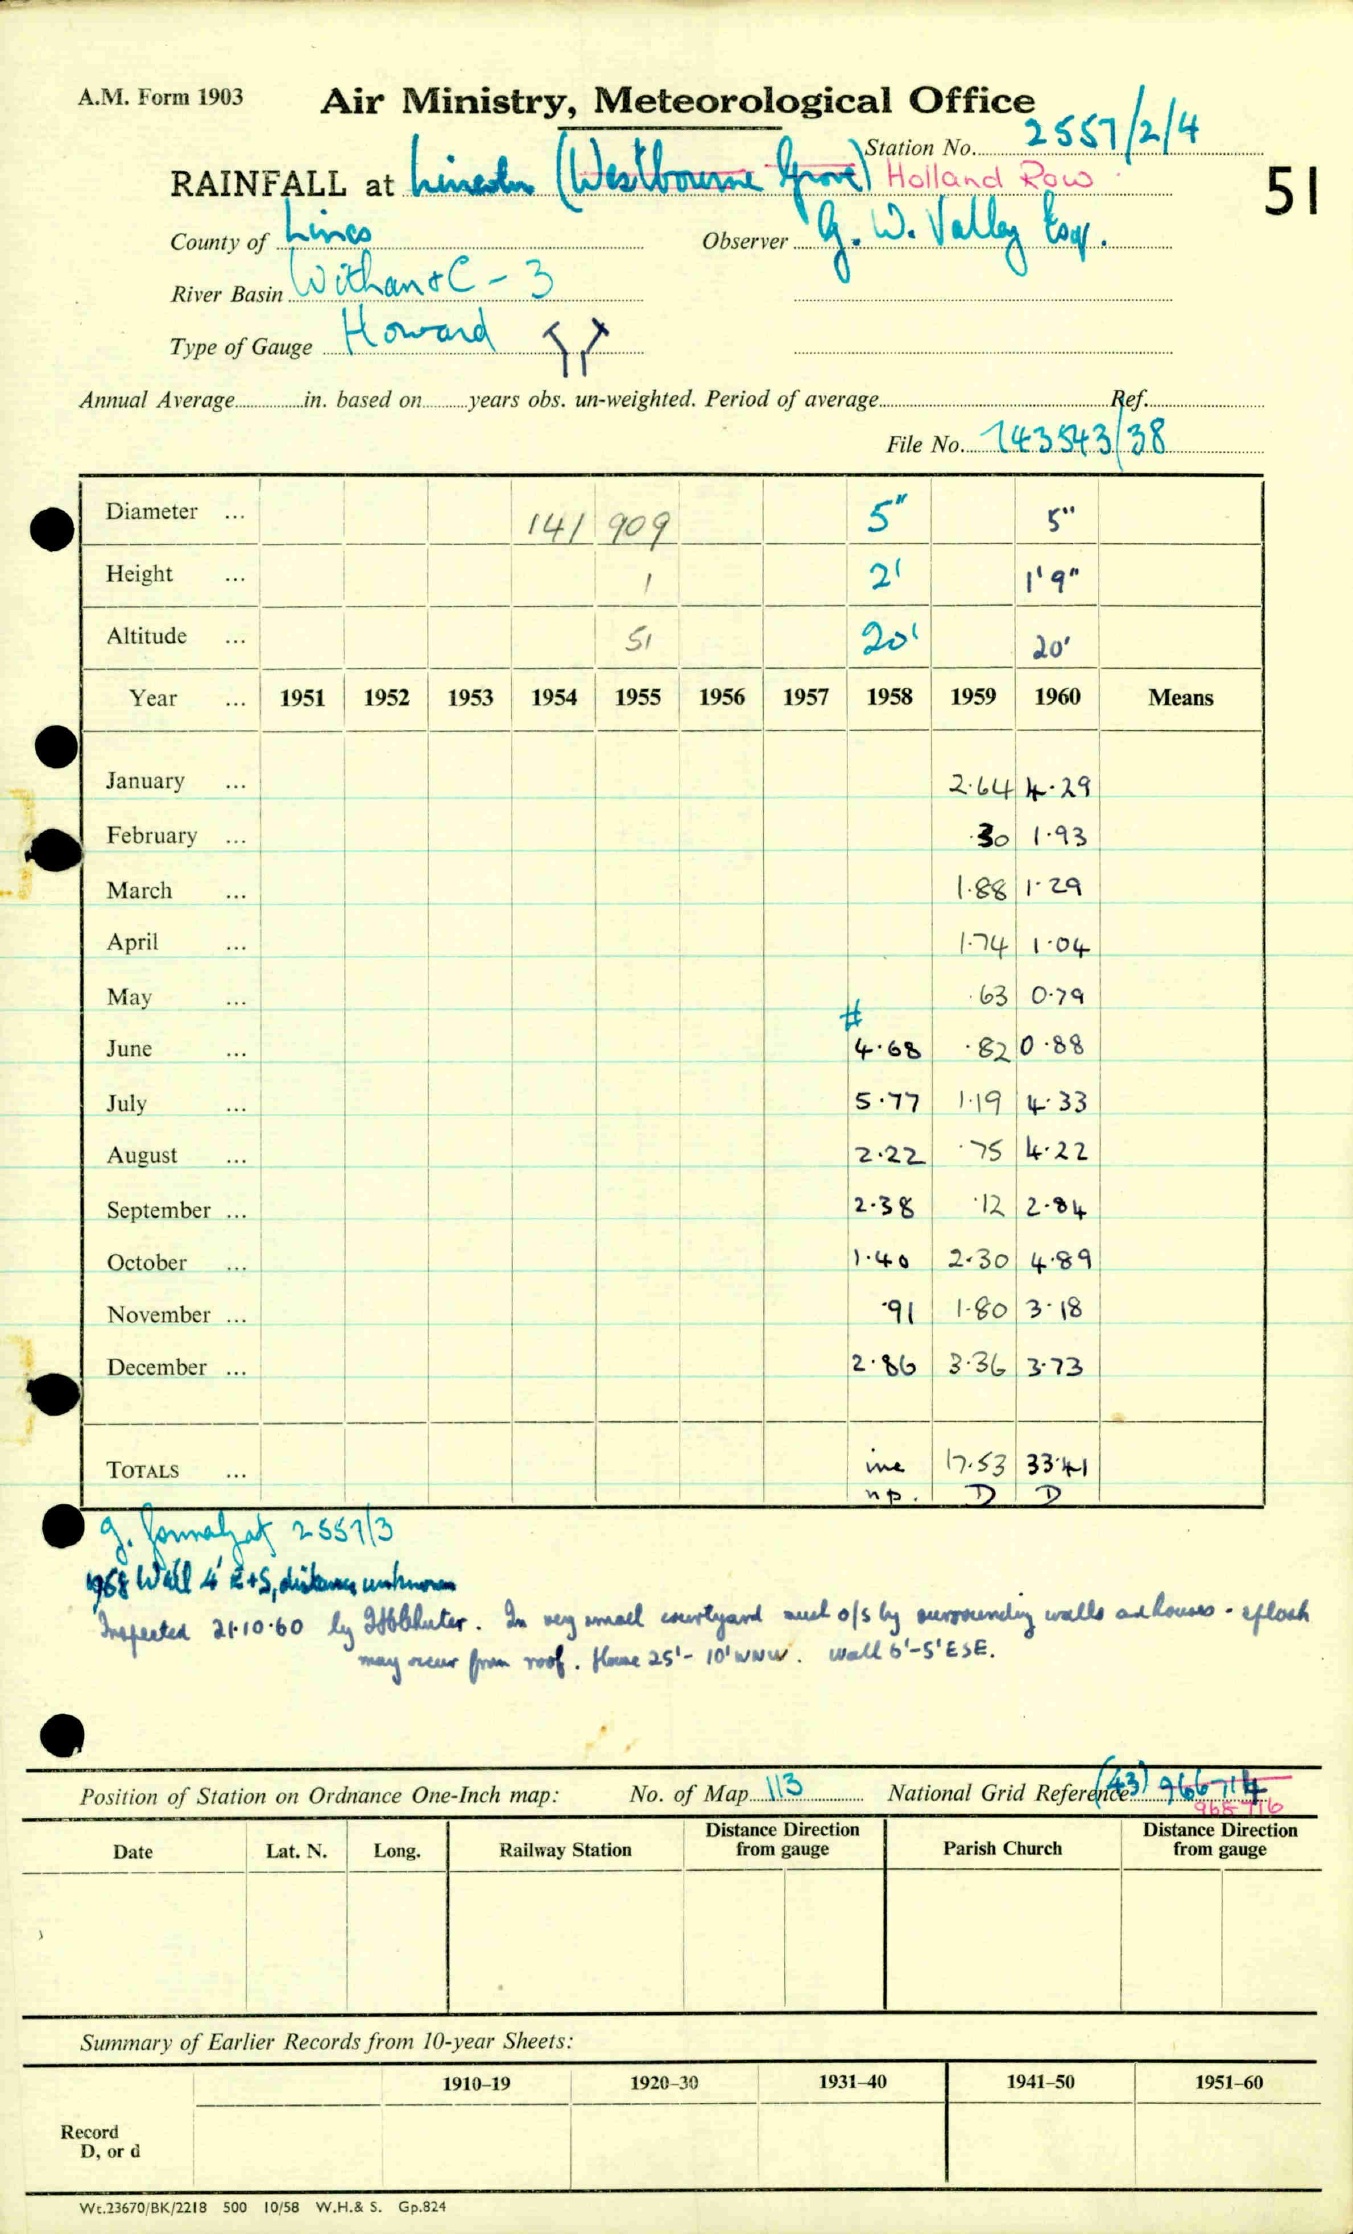 A.M. Form 1903 Air Ministry, Meteorological Office
Station No. 2557/2/4
RAINFALL at Lincoln (Westbourne Grove) Holland Row
51
County of Lincs Observer G. W. Valley Esq.
River Basin Witham & C - 3
Type of Gauge Howard
Annual Average in. based on years obs. un-weighted. Period of average Ref.
File No. 743543/38
Diameter ... 141 909 5" 5"
Height ... 1 2' 1'9"
Altitude ... 51 20' 20'
Year ... 1951 1952 1953 1954 1955 1956 1957 1958 1959 1960 Means
January ... 2.64 4.29
February ... .30 1.93
March ... 1.88 1.29
April ... 1.74 1.04
May ... .63 0.79
#
June ... 4.68 .82 0.88
July ... 5.77 1.19 4.33
August ... 2.22 .75 4.22
September ... 2.38 .12 2.84
October ... 1.40 2.30 4.89
November ... .91 1.80 3.18
December ... 2.86 3.36 3.73
TOTALS ... inc 17.53 33.41
np. D D
2557/3
1958 Wall 4' E+S, distance unknown
Inspected 21.10.60 by . In very small courtyard and o/s by surrounding walls and houses - splash
may occur from roof. House 25'- 10' WNW. wall 6'-5' ESE.
Position of Station on Ordnance One-Inch map: No. of Map 113 National Grid Reference (43) 966714
968716
Date Lat. N. Long. Railway Station Distance Direction from gauge Parish Church Distance Direction from gauge
Summary of Earlier Records from 10-year Sheets:
1910–19 1920–30 1931–40 1941–50 1951–60
Record
D, or d
Wt.23670/BK/2218 500 10/58 W.H.& S. Gp.824